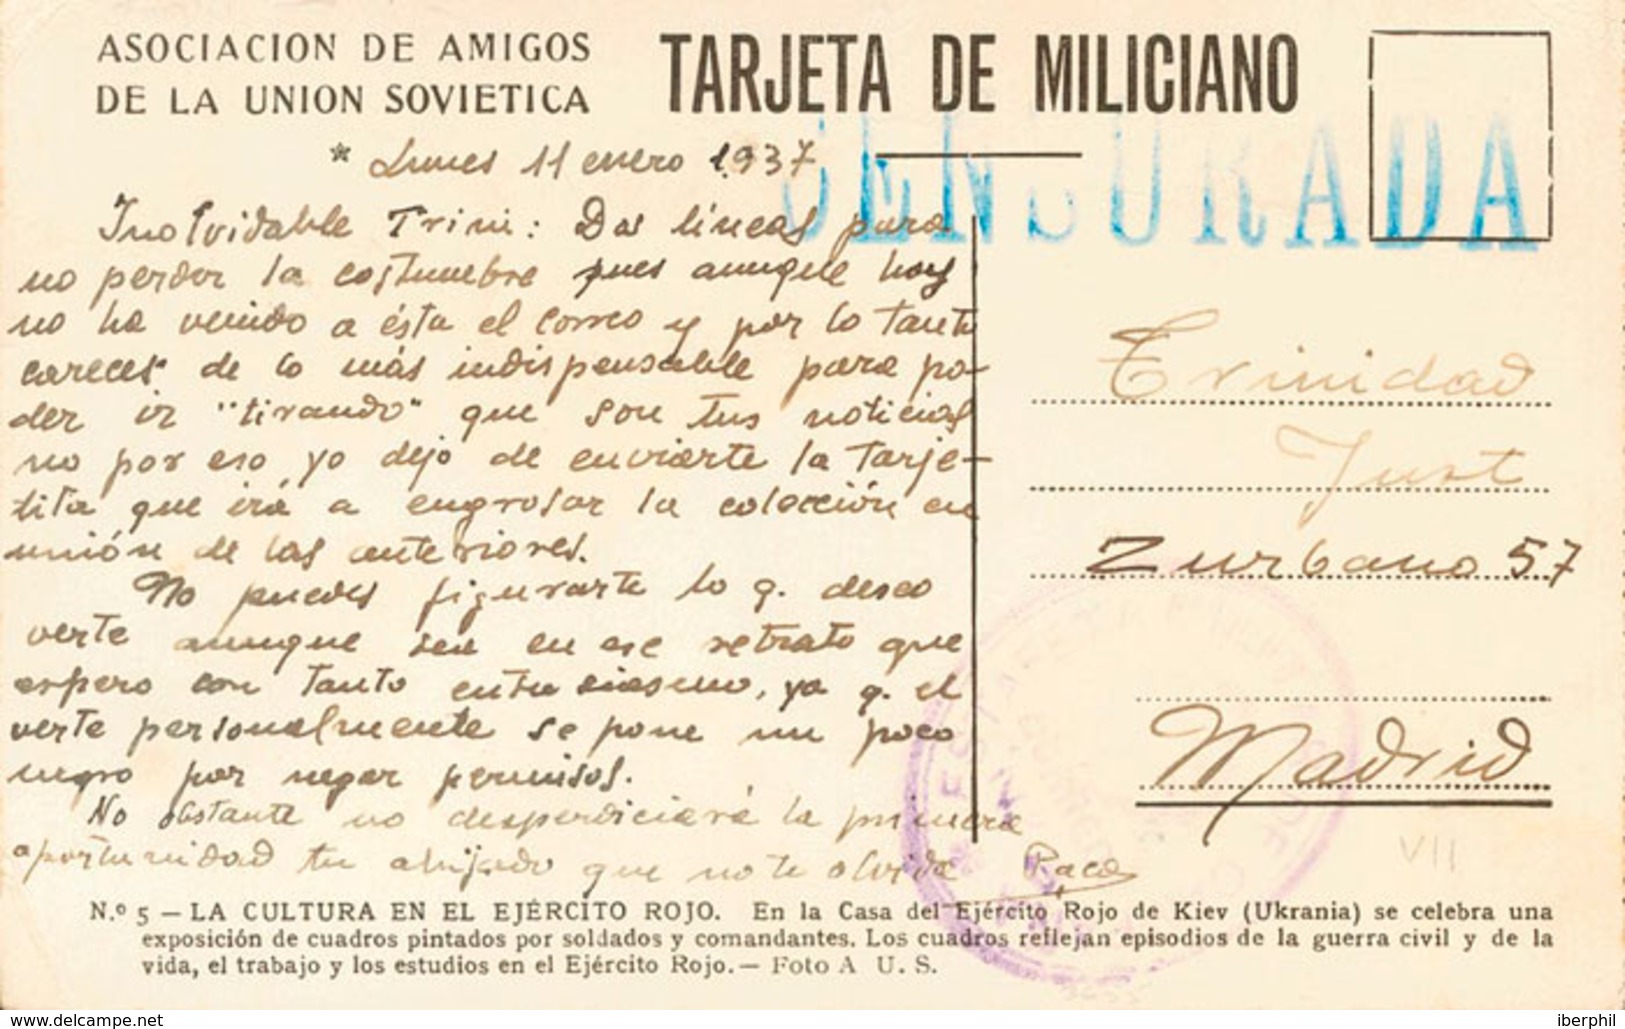 ASOCIACION DE AMIGOS
DE LA UNION SOVIETICA
TARJETA DE MILICIANO
CENSURADA
* Lunes 11 enero 1.937
Inolvidable Trini: Dos líneas para
no perder la costumbre pues aunque hoy
no ha venido a ésta el correo y por lo tanto
careces de lo más indispensable para po-
der ir "tirando" que son tus noticias
no por eso yo dejo de enviarte la tarje-
tita que irá a engrosar la colección en
unión de las anteriores.
No puedes figurarte lo q. deseo
verte aunque sea en ese retrato que
espero con tanto entusiasmo, ya q. el
verte personalmente se pone un poco
negro por negar permisos.
No obstante no desperdiciaré la primera
oportunidad tu ahijado que no te olvida
Paco
Trinidad
Just
Zurbano 57
Madrid
VII
N.º 5 — LA CULTURA EN EL EJÉRCITO ROJO. En la Casa del Ejército Rojo de Kiev (Ukrania) se celebra una
exposición de cuadros pintados por soldados y comandantes. Los cuadros reflejan episodios de la guerra civil y de la
vida, el trabajo y los estudios en el Ejército Rojo.— Foto A U. S.
www.delcampe.net
iberphil